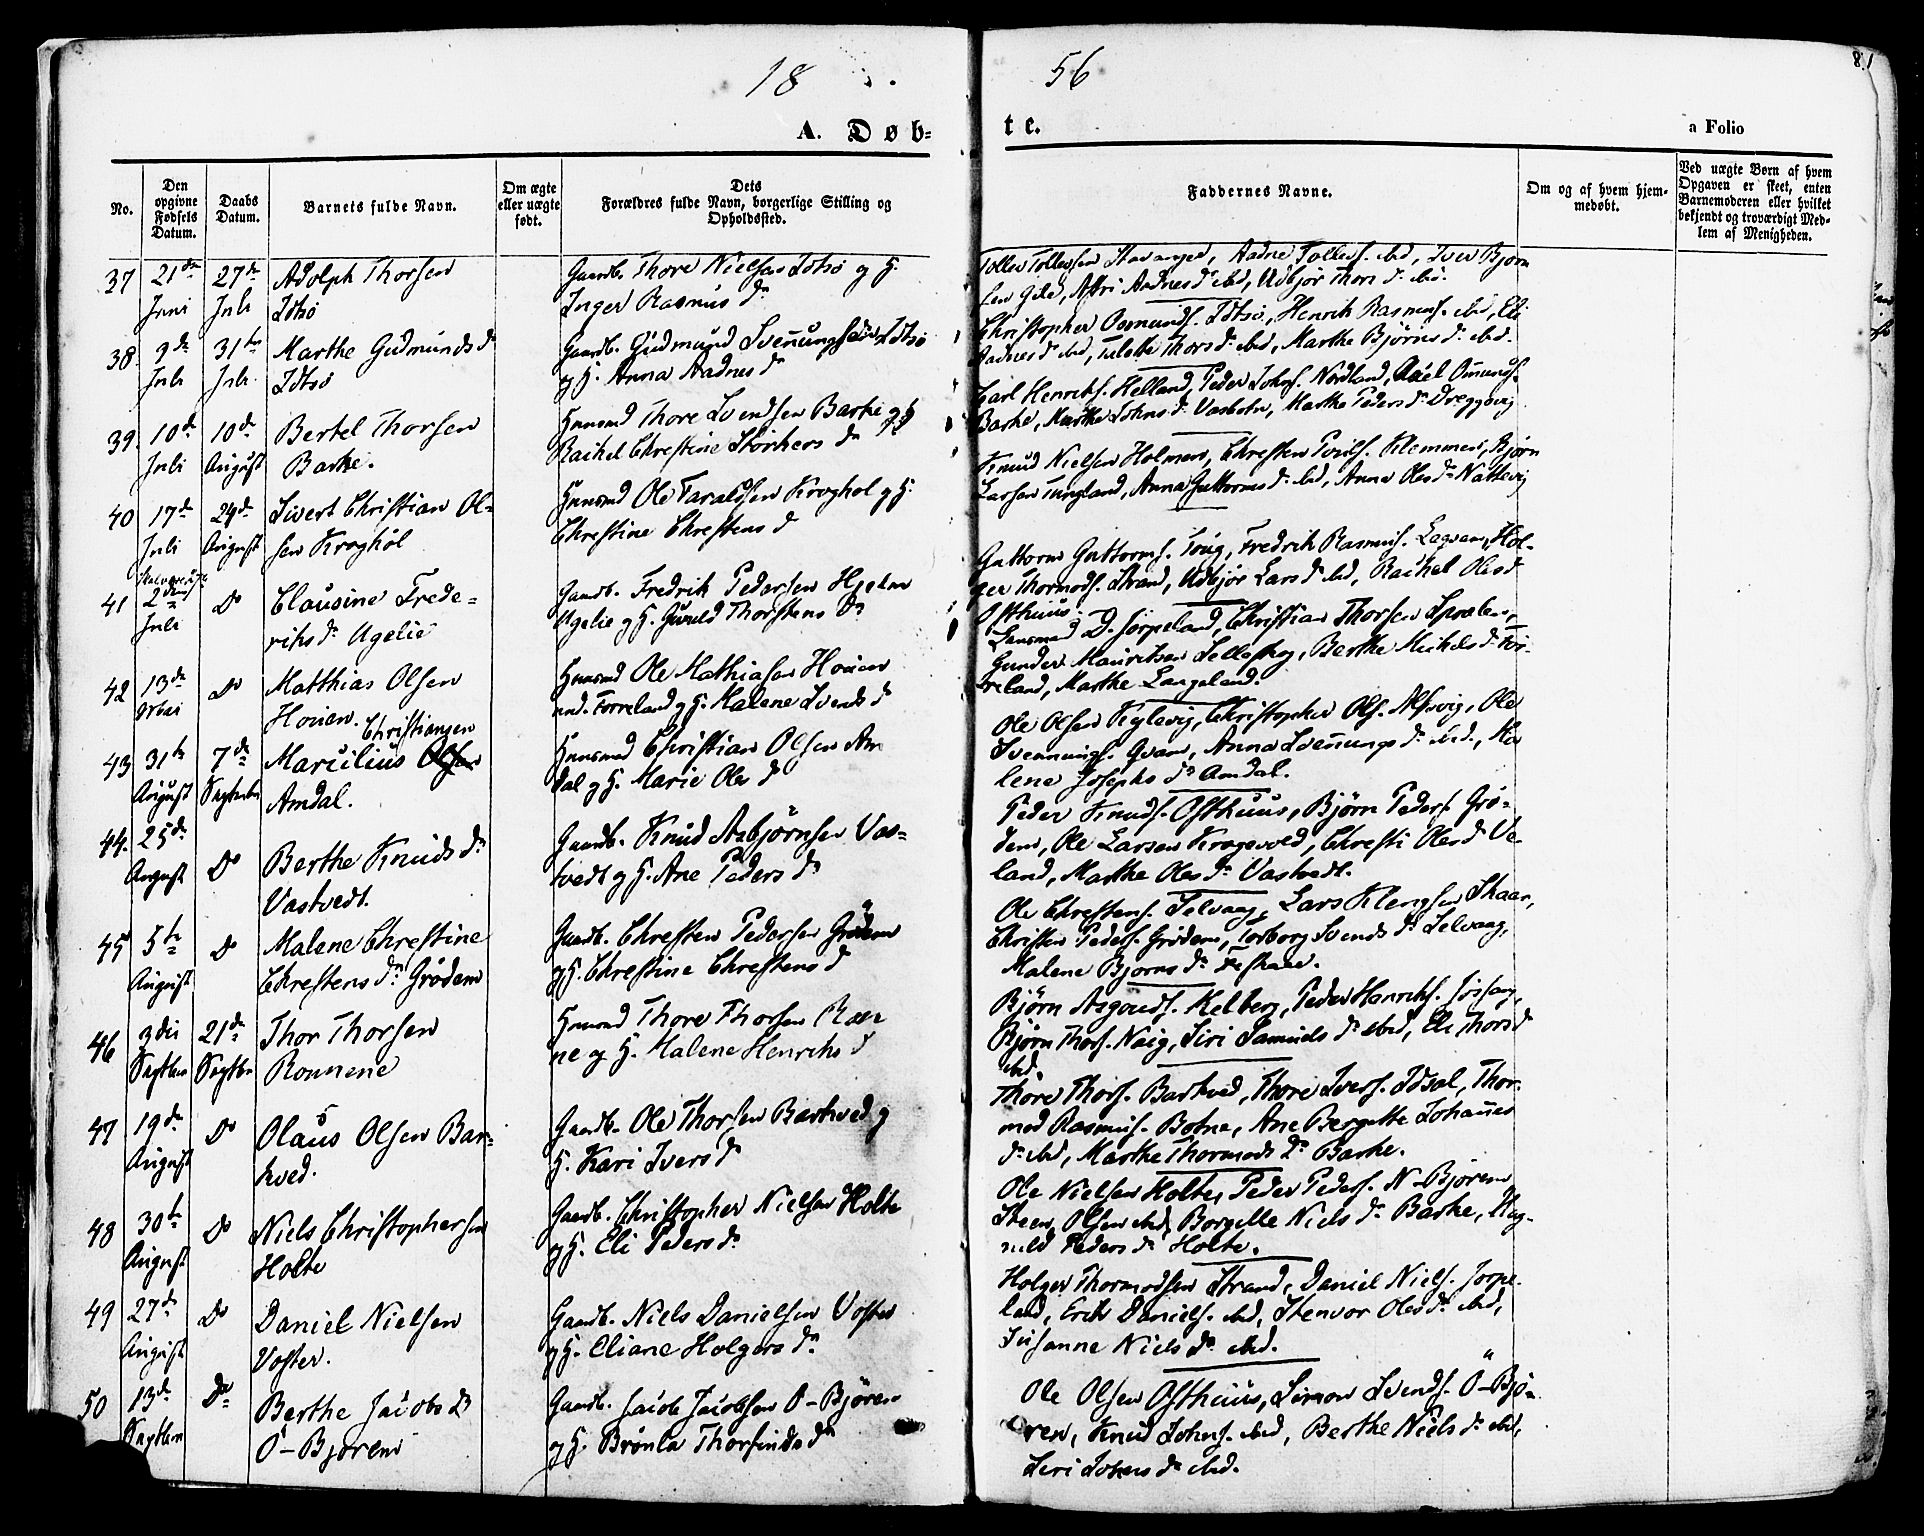 18 56
8.1
A. Døb-
te.
a Folio
No.
Den opgivne Fødsels Datum.
Daabs Datum.
Barnets fulde Navn.
Om ægte eller uægte født.
Dets Forældres fulde Navn, borgerlige Stilling og Opholdssted.
Faddernes Navne.
Om og af hvem hjemmedøbt.
Ved uægte Børn af hvem Opgaven er skeet, enten Barnemoderen eller hvilket bekjendt og troværdigt Medlem af Menigheden.
37 21de Juni 27de Juli
Adolph Thorsen
Idtsø
Gaardb. Thore Nielsen Idtsø og H.
Inger Rasmus d.
Tollev Tollevsen Stavanger, Aadne Tollefs. ibid, Iver Bjørn
sen Gild, Aadnes d. ibid, Udbjør Thors d. ibid.
38 9de Juli 31te Juli
Marthe Gudmunds d.
Idtsø
Gaardb. Gudmund Svenungsen Idtsø
og H. Anna Aadnes d
Christopher Osmunds. Idtsø, Henrik Rasmus. ibid, Eli
Aadnes d. ibid, Thors d. ibid, Marthe Bjørns d. ibid.
39. 10de Juli 10de August
Bertel Thorsen
Barke.
Huusmd Thore Svendsen Barke og H
Rachel Chrestine Størkers d.
Carl Henriks. Helland, Peder Johns. Nordland, Omunds.
Barke, Marthe Johns d. Vasbotn, Marthe Peders d. Dreggevig
40 17de Juli 24de August
Sivert Christian Ol-
sen Kroghol
Huusmd Ole Taraldsen Kroghol og H.
Chrestine Chrestens d
Knud Nielsen Holmen, Chresten Klemmer, Bjørn
Larsen Tungland, Anna Guttorms d. ibid, Anna Oles d. Nattevig
41 2den Juli Do
Clausine Frede-
riks d. Ugelie
Gaardb. Fredrik Pedersen Hjelm
Ugelie og H. Gunild Thorstens d.
Guttorm Guttorms. Toug, Fredrik Rasmus. Hol-
ger Thormods. Strand, Udbjør Lars d. ibid, Rachel Oles d
Osthuus.
42 13de Do
Matthias Olsen
Houen.
Huusmd Ole Mathiasen Houen
und. Forreland og H. Malene Svends d
Lensmd D. Jørpeland, Christian Thorsen
Gunder Mauritsen Sellesteg, Berthe Michels d. For-
reland, Marthe Langeland.
43 31te August 7de Septembr
Christiansen
Marcilius Olsen
Amdal.
Huusmd Christian Olsen Am
dal og H. Marie Oles d
Ole Olsen Kylevig, Christopher Ols. Alsvig, Ole
Svennungs. Qvam, Anna Svennungs d. ibid., Ma
lene Josephs d. Amdal.
44. 25de August Do
Berthe Knuds d.
Vastvedt.
Gaardb. Knud Asbjørnsen Vas-
tvedt og H. Ane Peders d.
Peder Knuds. Osthuus, Bjørn Peders. Grø-
dem, Ole Larsen Kragevold, Chresti Oles d. Ve-
land, Marthe Oles d. Vastvedt.
45 5te August Do
Malene Chrestine
Chrestens d. Grödem
Gaardb. Chresten Pedersen Grødem
og H. Chrestine Chrestens d
Ole Chrestens. Selvaag, Lars Klengsen Skaar,
Christen Peders. Grødem, Torborg Svends d. Selvaag,
Malene Bjorns d.
46 3die Septbr 21de Septbr
Thor Thorsen
Rounene
Huusmd Thore Thorsen Roune
ne og H. Malene Henriks d
Bjørn Asgouds. Kelberg, Peder Henriks. Jøssang,
Bjørn Thors. Naig, Siri Samuels d. ibid, Eli Thors d
ibid.
47 19de August Do
Olaus Olsen Bar-
kved.
Gaardb. Ole Thorsen Barkved og
H. Kari Ivers d.
Thore Thors. Barkved, Thore Ivers. Idsal, Thor-
mod Rasmus. Botne, Ane Bergitte Johannes
d. ibid, Marthe Thormods d. Barke.
48 30te August Do
Niels Christophersen
Holte
Gaardb. Christopher Nielsen Holte
og H. Eli Peders d.
Ole Nielsen Holte, Peder Peders. N-Bjørem,
Steen Olsen ibid, Borgelle Niels d. Barke, Rag-
nild Peders d. Holte.
49 27de August Do
Daniel Nielsen
Voster.
Gaardb. Niels Danielsen Voster
og H. Eliane Holgers d.
Holger Thormodsen Strand, Daniel Niels. Jorpe-
land, Erik Daniels. ibid, Stenvor Oles d. ibid,
Susanne Niels d. ibid.
50 13de Septem Do
Berthe Jacobs D
O-Bjørem
Gaardb. Jacob Jacobsen O-Bjørem
og H. Brønla Thorfinds d.
Ole Olsen Osthuus, Simon Svends. O-Bjø-
ren, Knud Johns. ibid, Berthe Niels d. ibid,
Seri Johns d. ibid.